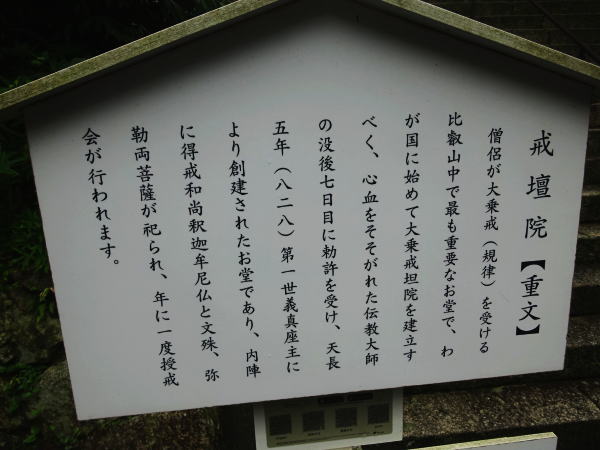 戒壇院【重文】
僧侶が大乗戒（規律）を受ける
比叡山中で最も重要なお堂で、わ
が国に始めて大乗戒坦院を建立す
べく、心血をそそがれた伝教大師
の没後七日目に勅許を受け、天長
五年（八二八）第一世義真座主に
より創建されたお堂であり、内陣
に得戒和尚釈迦牟尼仏と文殊、弥
勒両菩薩が祀られ、年に一度授戒
会が行われます。